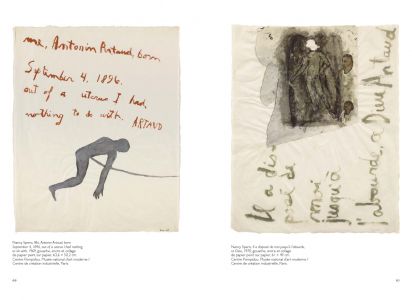 me, Antonin Artaud, born
September 4, 1896.
out of a uterus I had
nothing to do with. ARTAUD
Nancy Spero, Me, Antonin Artaud, born
September 4, 1896, out of a uterus I had nothing
to do with, 1969, gouache, encre et collage
de papier peint sur papier, 63,6 × 50,2 cm.
Centre Pompidou, Musée national d'art moderne /
Centre de création industrielle, Paris.
66
Il a dis
posé de
moi
jusqu'à
l'absurde, à Dieu Artaud
Nancy Spero, Il a disposé de moi jusqu'à l'absurde,
1970, gouache, encre et collage
de papier peint sur papier,
Centre Pompidou, Musée national d'art moderne /
Centre de création industrielle, Paris.